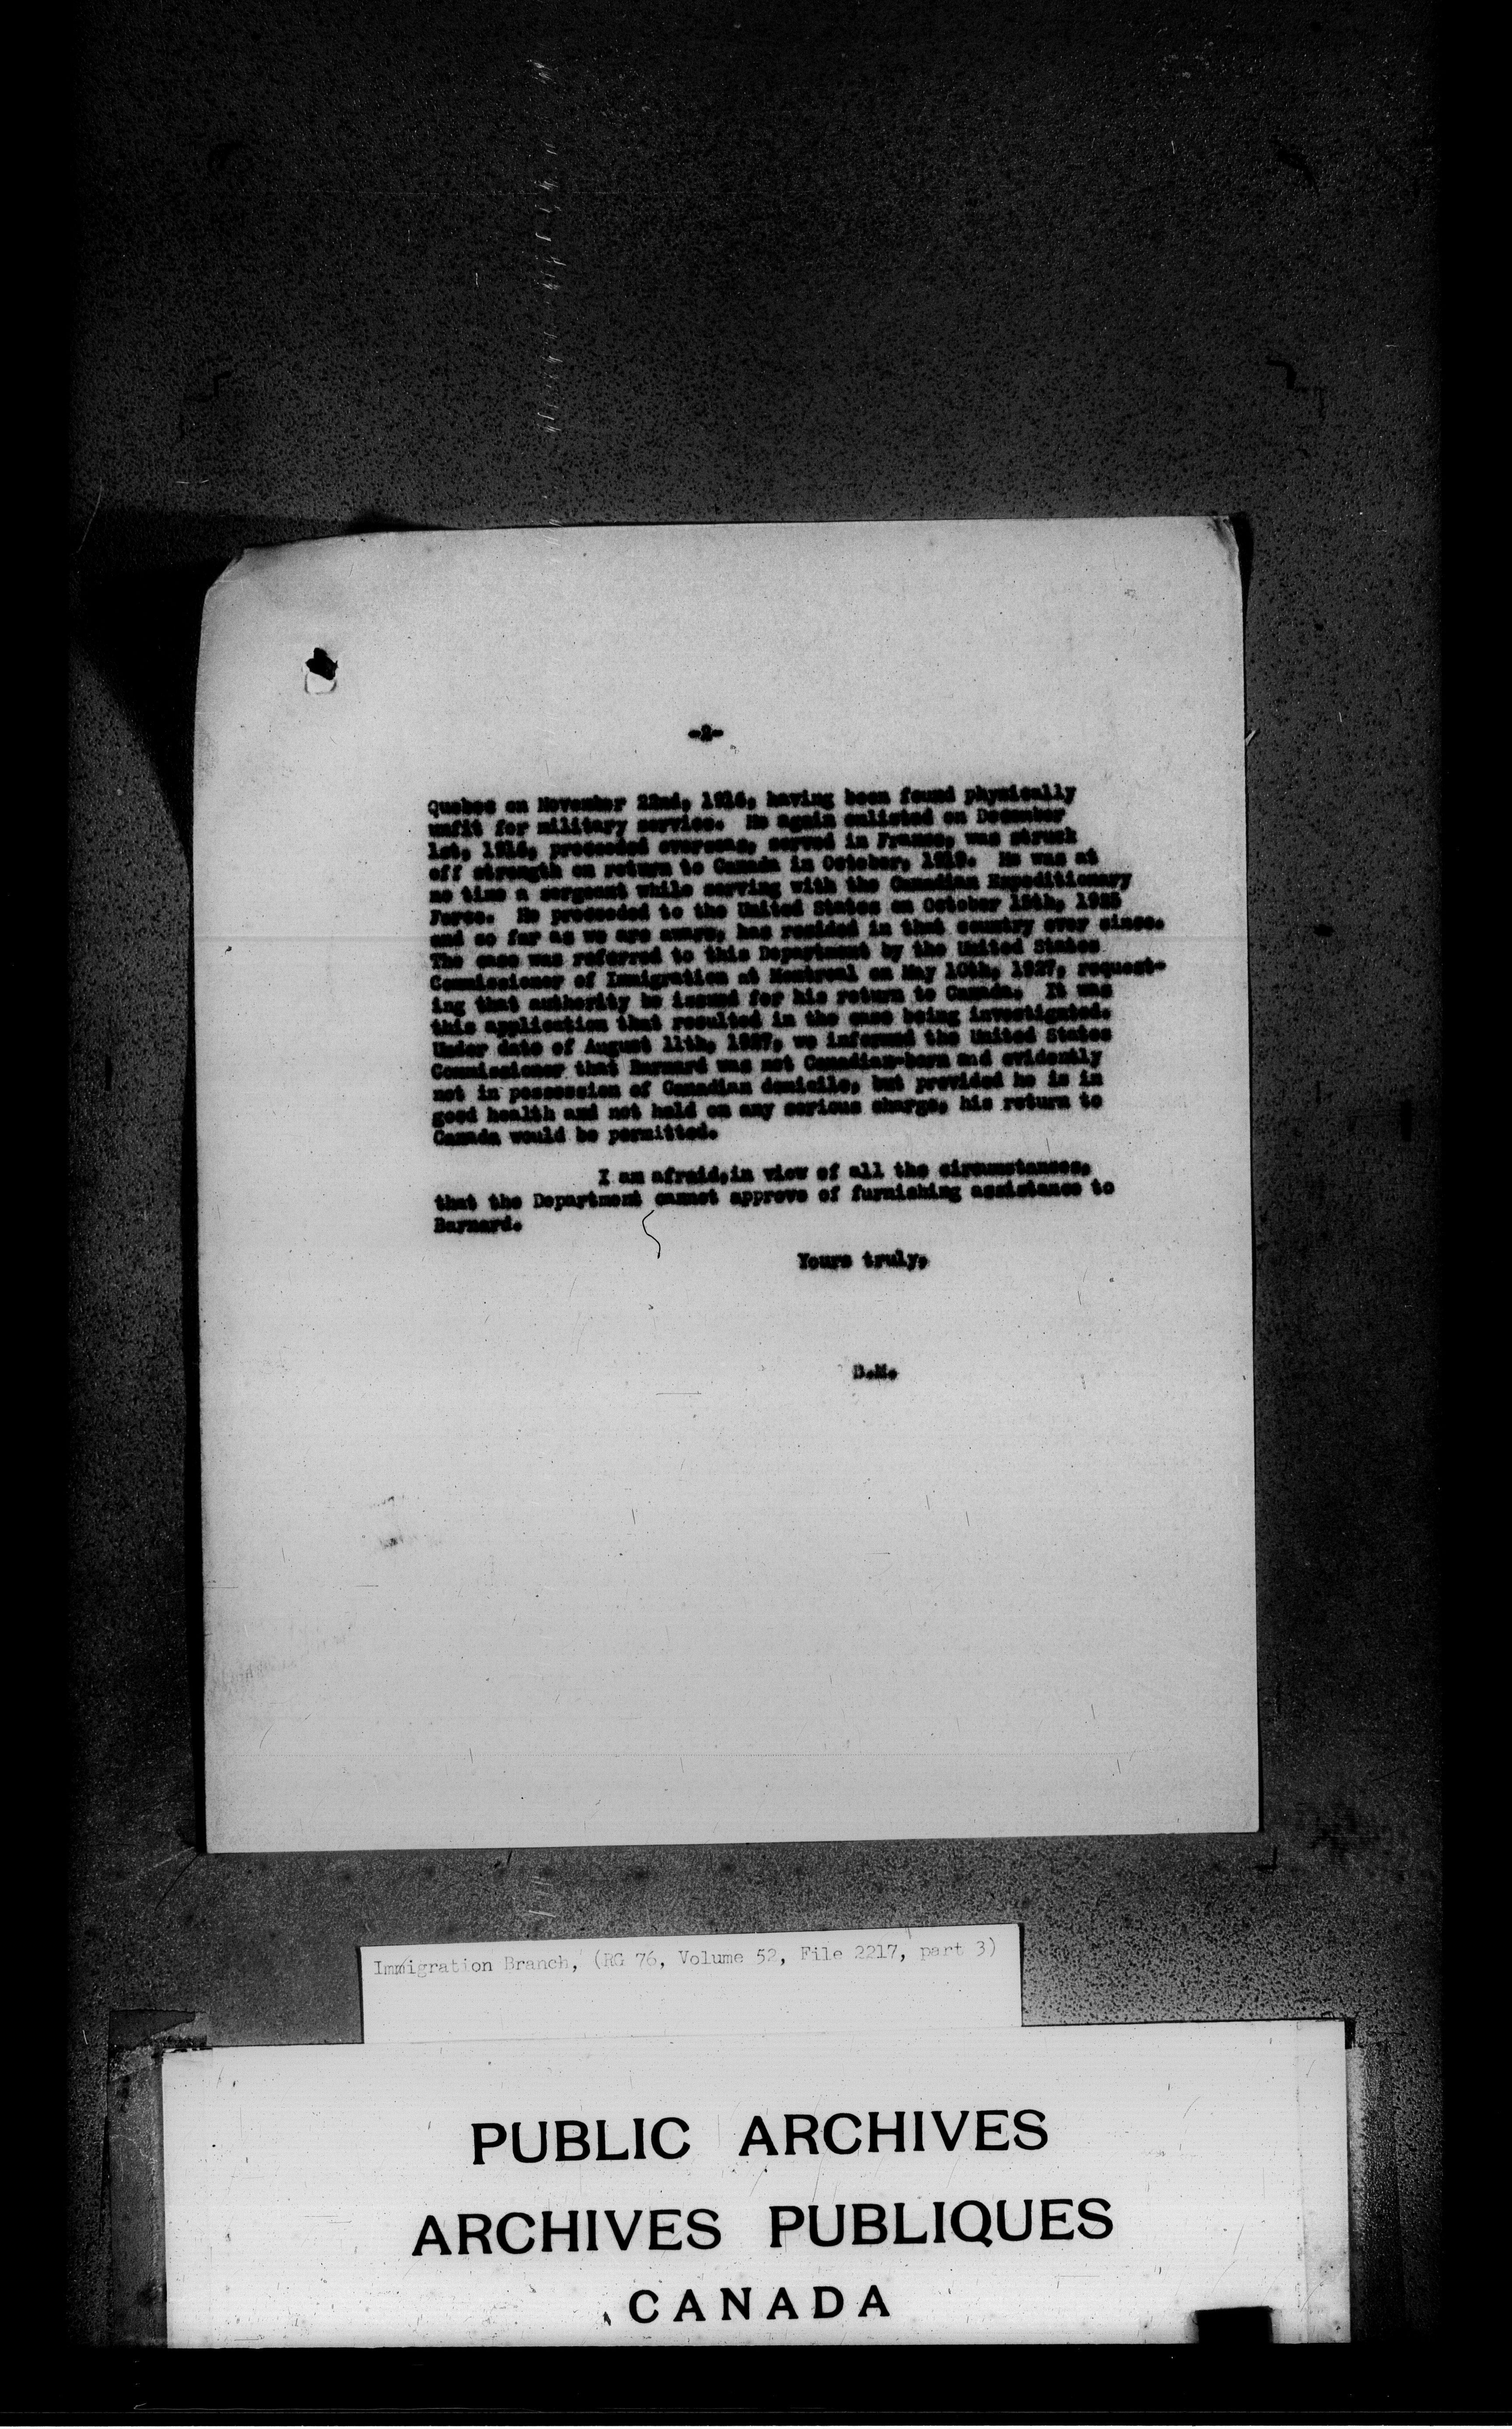 -2-
Quebec on November 22nd, 1916, having been found physically
unfit for military service. He again enlisted on December
1st, 1916, proceeded overseas, served in France, was struck
off strength on return to Canada in October, 1919. He was at
no time a sergeant while serving with the Canadian Expeditionary
Force. He proceeded to the United States on October 15th, 1925
and so far as we are aware, has resided in that country ever since.
The case was referred to this Department by the United States
Commissioner of Immigration at Montreal on May 10th, 1927, request-
ing that authority be issued for his return to Canada. It was
this application that resulted in the case being investigated.
Under date of August 11th, 1927, we informed the United States
Commissioner that Barnard was not Canadian-born and evidently
not in possession of Canadian domicile, but provided he is in
good health and not held on any serious charge, his return to
Canada would be permitted.
I am afraid,in view of all the circumstances,
that the Department cannot approve of furnishing assistance to
Barnard.
Yours truly,
D.M.
Immigration Branch, (RG 76, Volume 52, File 2217, part 3)
PUBLIC ARCHIVES
ARCHIVES PUBLIQUES
CANADA